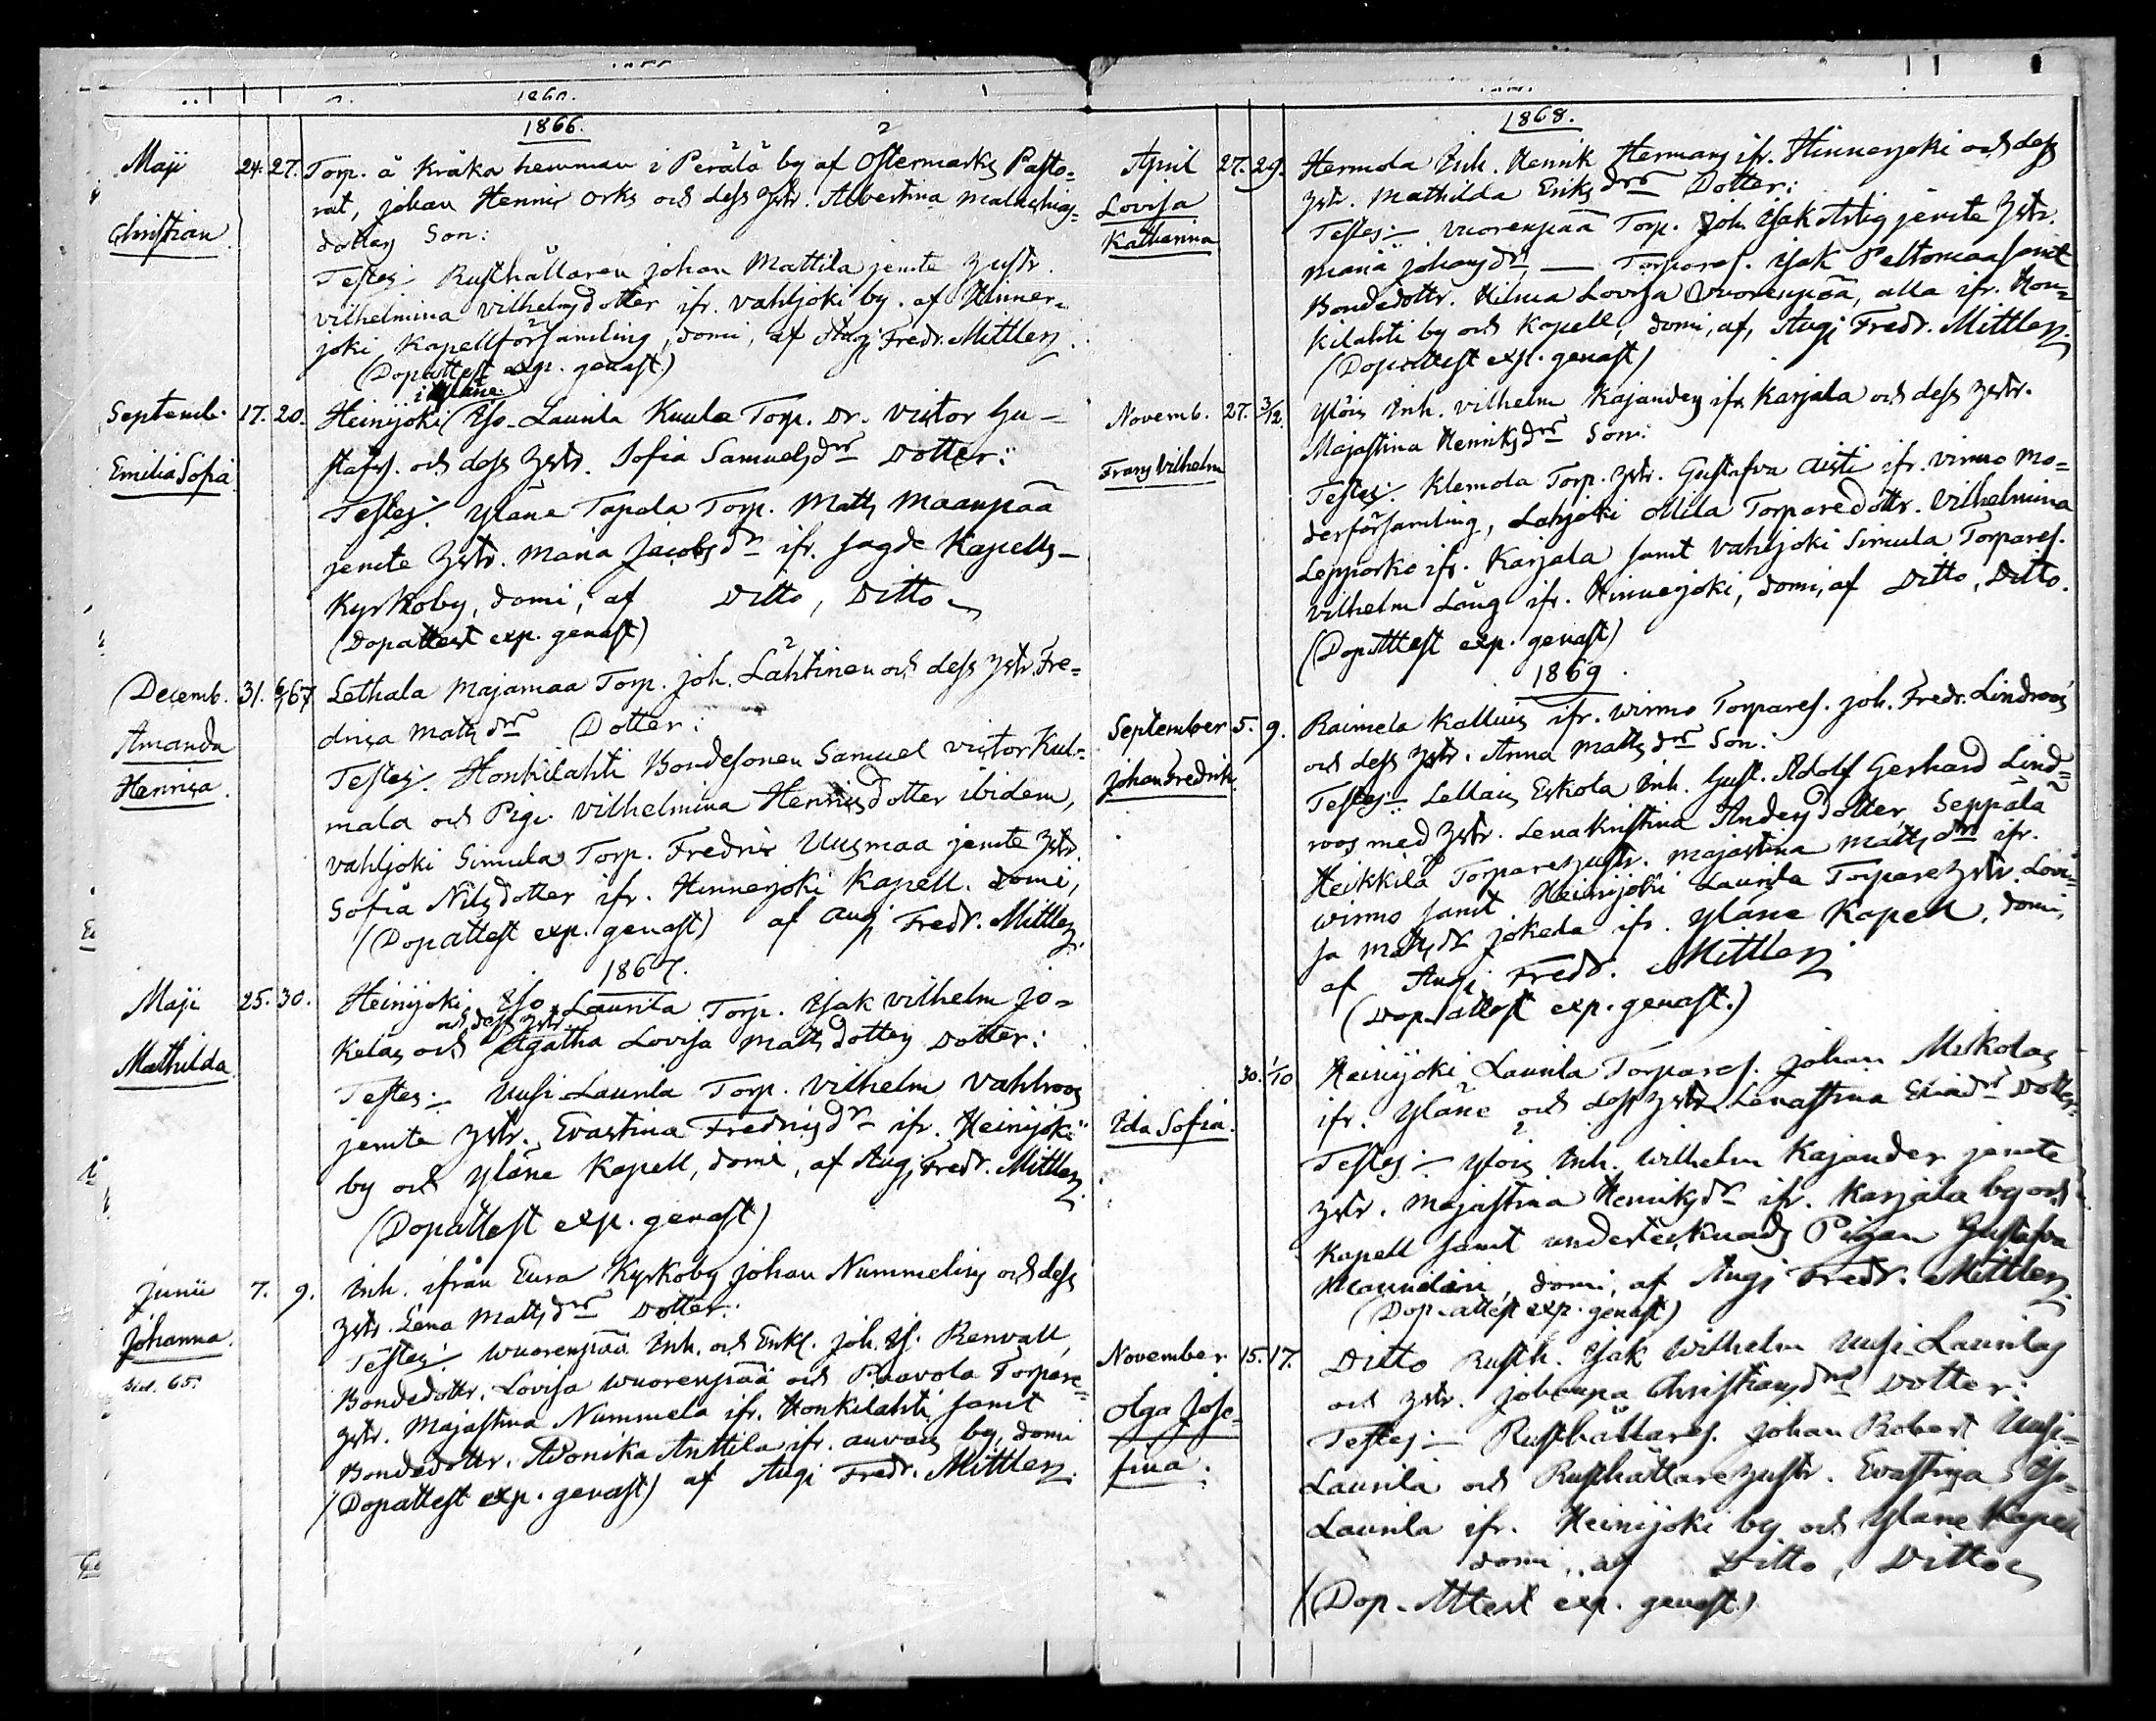 1866.
Maji 24. 27. Torp. å Kråka hemman i Perälä by af Östermarks Pasto=
rat, Johan Henric Orks och dess hstr. Albertina Mathehias=
Christian dotters Son:
Testes: Rusthållaren Johan Mattila jemte hustr.
Vilhelmina Vilhelmsdotter ifr. Vahljoki by af Hinner=
joki Kapellförsamling, domi, af Aug. Fredr. Mittler.
(Dopattest exp. genast)
i Yläne
Septemb. 17. 20. Heinijoki Yso-Laurila Kuula Torp. Dr. Victor Gu-
stafss. och dess hstr. Sofia Samuelsdr Dotter:
Emilia Sofia
Testes: Yläne Tapola Torp. Matts Maanpää
jemte hstr. Maria Jacobsdr ifr. sagde Kapells-
Kyrkoby, domi, af Ditto, Ditto
(Dopattest exp. genast)
Decemb. 31. 6/1 67 Lethala Majamaa Torp. Joh. Lähtinen och dess hstr. Fre=
drica Mattsdr Dotter:
Amanda
Henrica.
Testes: Honkilahti Bondesonen Samuel Victor Kul=
mala och Pig. Vilhelmina Henricsdotter ibidem,
Vahljoki Simula Torp. Fredric Uusmaa jemte hstr.
Sofia Nilsdotter ifr. Hinnerjoki Kapell. domi,
(Dopattest exp. genast) af Aug. Fredr. Mittler.
1867.
Maji 25. 30. Heinijoki Yso Laurila Torp. Isak Vilhelm Jo=
och dess hstr.
kelas och Agatha Lovisa Mattsdotters Dotter:
Mathilda
Testes: Uusi-Laurila Torp. Vilhelm Vahlroos
jemte hstr. Evastina Fredricsdr ifr. Heinijoki
by och Yläne Kapell, domi, af Aug. Fredr. Mittler.
(Dopattest exp. genast)
Junii 7. 9. Inh. ifrån Eura Kyrkoby Johan Nummelins och dess
hstr. Lena Mattsdr Dotter:
Johanna.
Testes: Wuorenpää Inh. och Enkl. Joh. Is. Renvall,
Bondedottr. Lovisa Wuorenpää och Paavola Torpare=
hstr. Majastina Nummela ifr. Honkilahti samt
Bondedottr. Adonika Anttila ifr. Auvais by, domi
(Dopattest exp. genast) af Aug. Fredr. Mittler.
1868.
April 27. 29. Hermola Inh. Henrik Hermans ifr. Hinnerjoki och dess
hstr. Mathilda Eriksdr Dotter:
Lovisa
Katharina
Testes: Vuorenpää Torp. Joh. Isak Artig jemte hstr.
Maria Johansdr, — Torpares. Isak Peltomaa samt
Bondedottr. Hilma Lovisa Vuorenpää, alla ifr. Hon=
kilahti by och Kapell, domi, af, Aug. Fredr. Mittler.
(Dopattest exp. genast)
Novemb. 27. 3/12. Ylöis Inh. Vilhelm Kajanders ifr. Karjala och dess hstr.
Majastina Henriksdr Son:
Frans Vilhelm
Testes: Klemola Torp. hstr. Gustafva Aisti ifr. Virmo Mo=
derförsamling, Lahjoki Ollila Torparedottr. Vilhelmina
Lepporko ifr. Karjala samt Vahljoki Simula Torpares.
Vilhelm Lång ifr. Hinnerjoki, domi, af Ditto, Ditto.
(Dop Attest exp. genast)
1869.
September 5. 9. Raimela Kallius ifr. Wirmo Torpares. Joh. Fredr. Lindroos
och dess hstr. Anna Mattsdr Son:
Johan Fredrik.
Testes: Lellais Eskola Inh. Gust. Adolf Gerhard Lind=
roos med hstr. Lena Kristina Andersdotter, Seppälä
Heikkilä Torparehustr. Majastina Mattsdr ifr.
Wirmo samt Heinijoki Laurila Torparehstr. Lovi=
sa Mattsdr Jokela ifr. Yläne Kapell, domi,
af Aug. Fredr. Mittler.
(Dop. attest exp. genast.)
30. 1/10 Heinijoki Laurila Torpares. Johan Mikolas
ifr. Yläne och dess hstr. Lenastina Dotter:
Ida Sofia.
Testes: Ylöis Inh. Wilhelm Kajander jemte
hstr. Majastina Henriksdr ifr. Karjala by och
Kapell samt undertecknads Pigan Gustafva
domi, af Aug. Fredr. Mittler.
(Dop. attest exp. genast)
November 15. 17. Ditto Rusth. Isak Wilhelm Uusi-Laurilas
och hstr. Johanna Christiansdr Dotter:
Olga Jose=
fina.
Testes: Rusthållares. Johan Robert Uusi=
Laurila och Rusthållarehustr. Evastina Yso=
Laurila ifr. Heinijoki by och Yläne Kapell
domi, af Ditto, Ditto
(Dop. Attest exp. genast.)